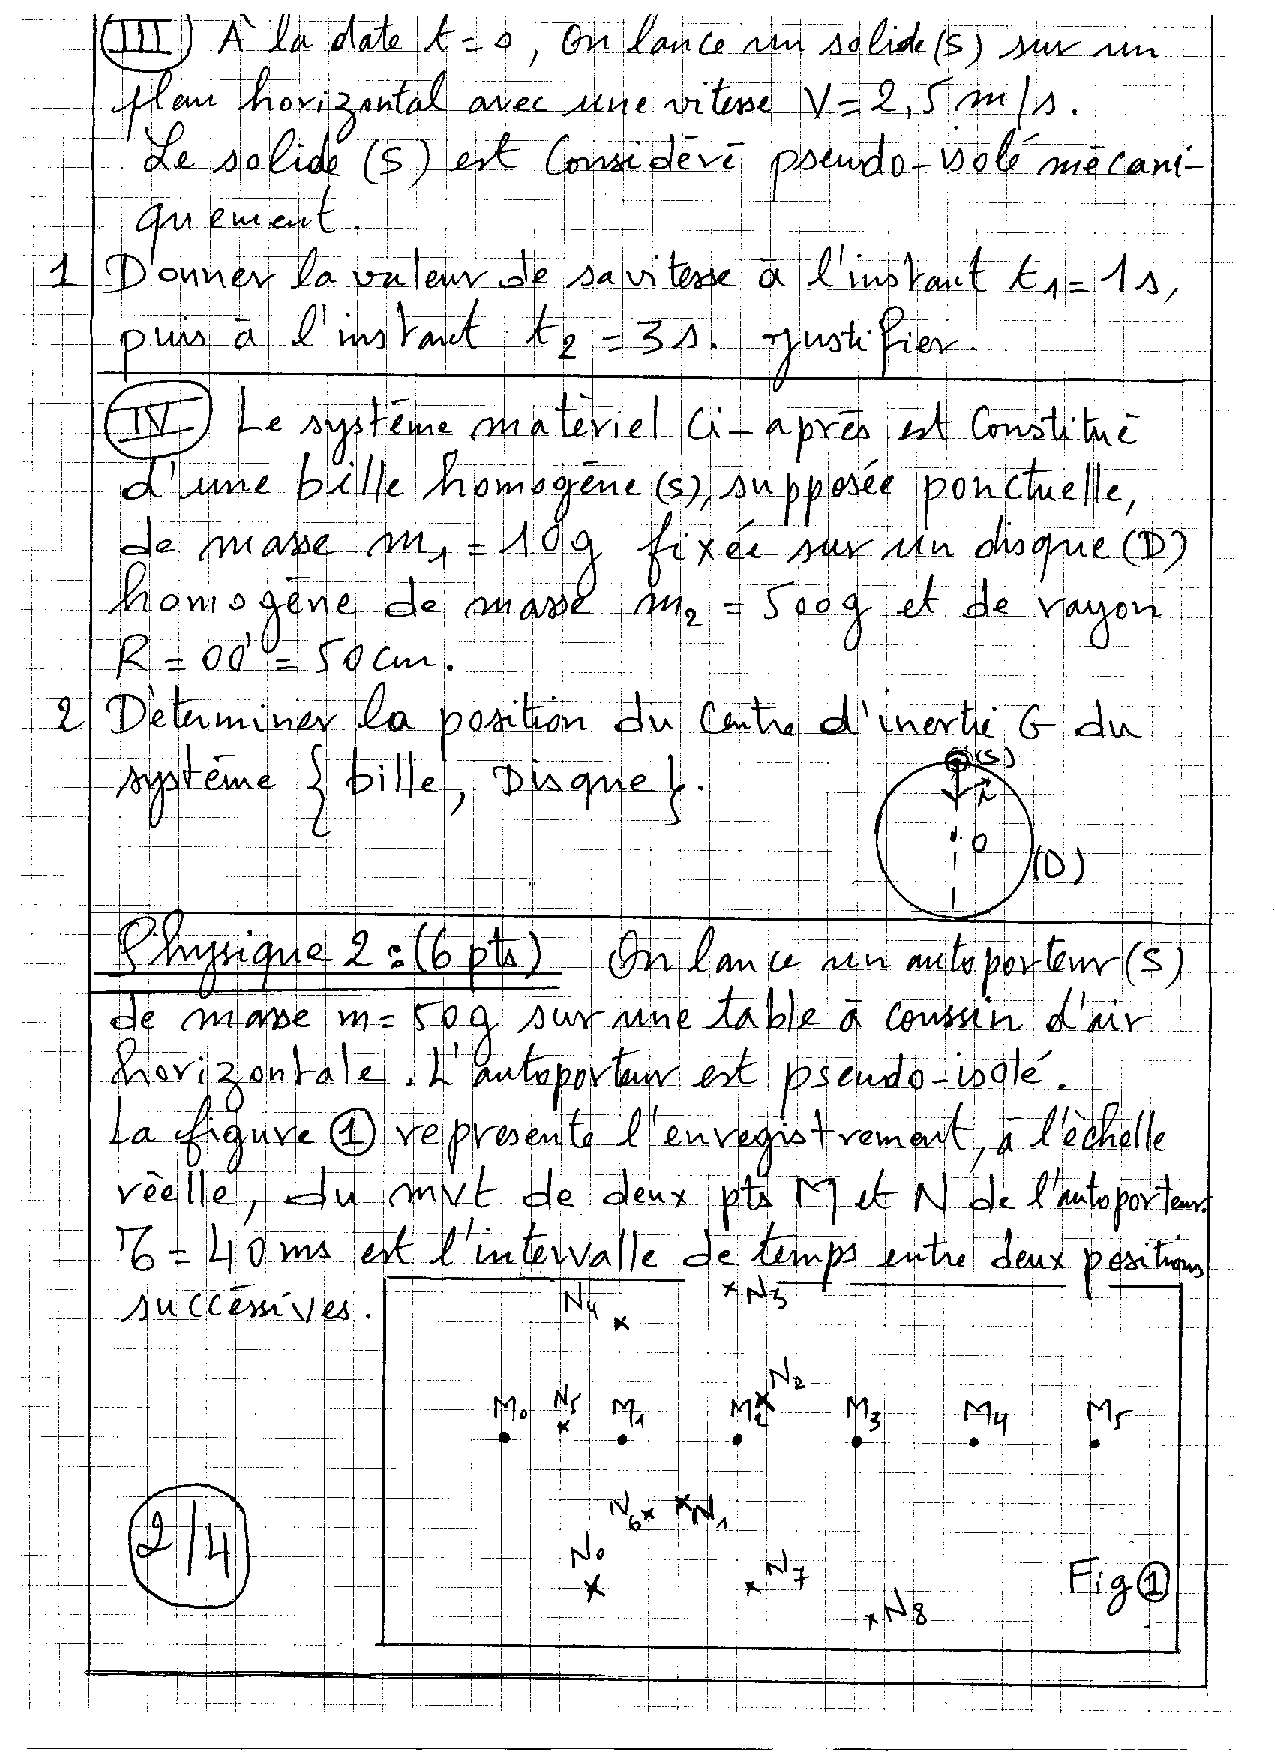 III) A la date t=0, On lance un solide (S) sur un
plan horizontal avec une vitesse V=2,5 m/s.
Le solide (S) est Considéré pseudo-isolé mécani-
quement.
1 Donner la valeur de sa vitesse à l'instant t1=1s,
puis à l'instant t2=3s. Justifier.
IV) Le système matériel Ci-après est Constitué
d'une bille homogène (S), supposée ponctuelle,
de masse m1=10g fixée sur un disque (D)
homogène de masse m2=500g et de rayon
R=OO'=50cm.
2 Déterminer la position du Centre d'inertie G du
système { bille, Disque}.
(S)
O
(D)
Physique 2:(6 pts) On lance un autoporteur (S)
de masse m=50g sur une table à coussin d'air
horizontale. L'autoporteur est pseudo-isolé.
La figure ① représente l'enregistrement, à l'échelle
réelle, du mvt de deux pts M et N de l'autoporteur.
τ=40ms est l'intervalle de temps entre deux positions
successives.
N4 N3
N2
M0 N5 M1 M2 M3 M4 M5
N6 N1
N0 N7
N8
Fig①
2/4